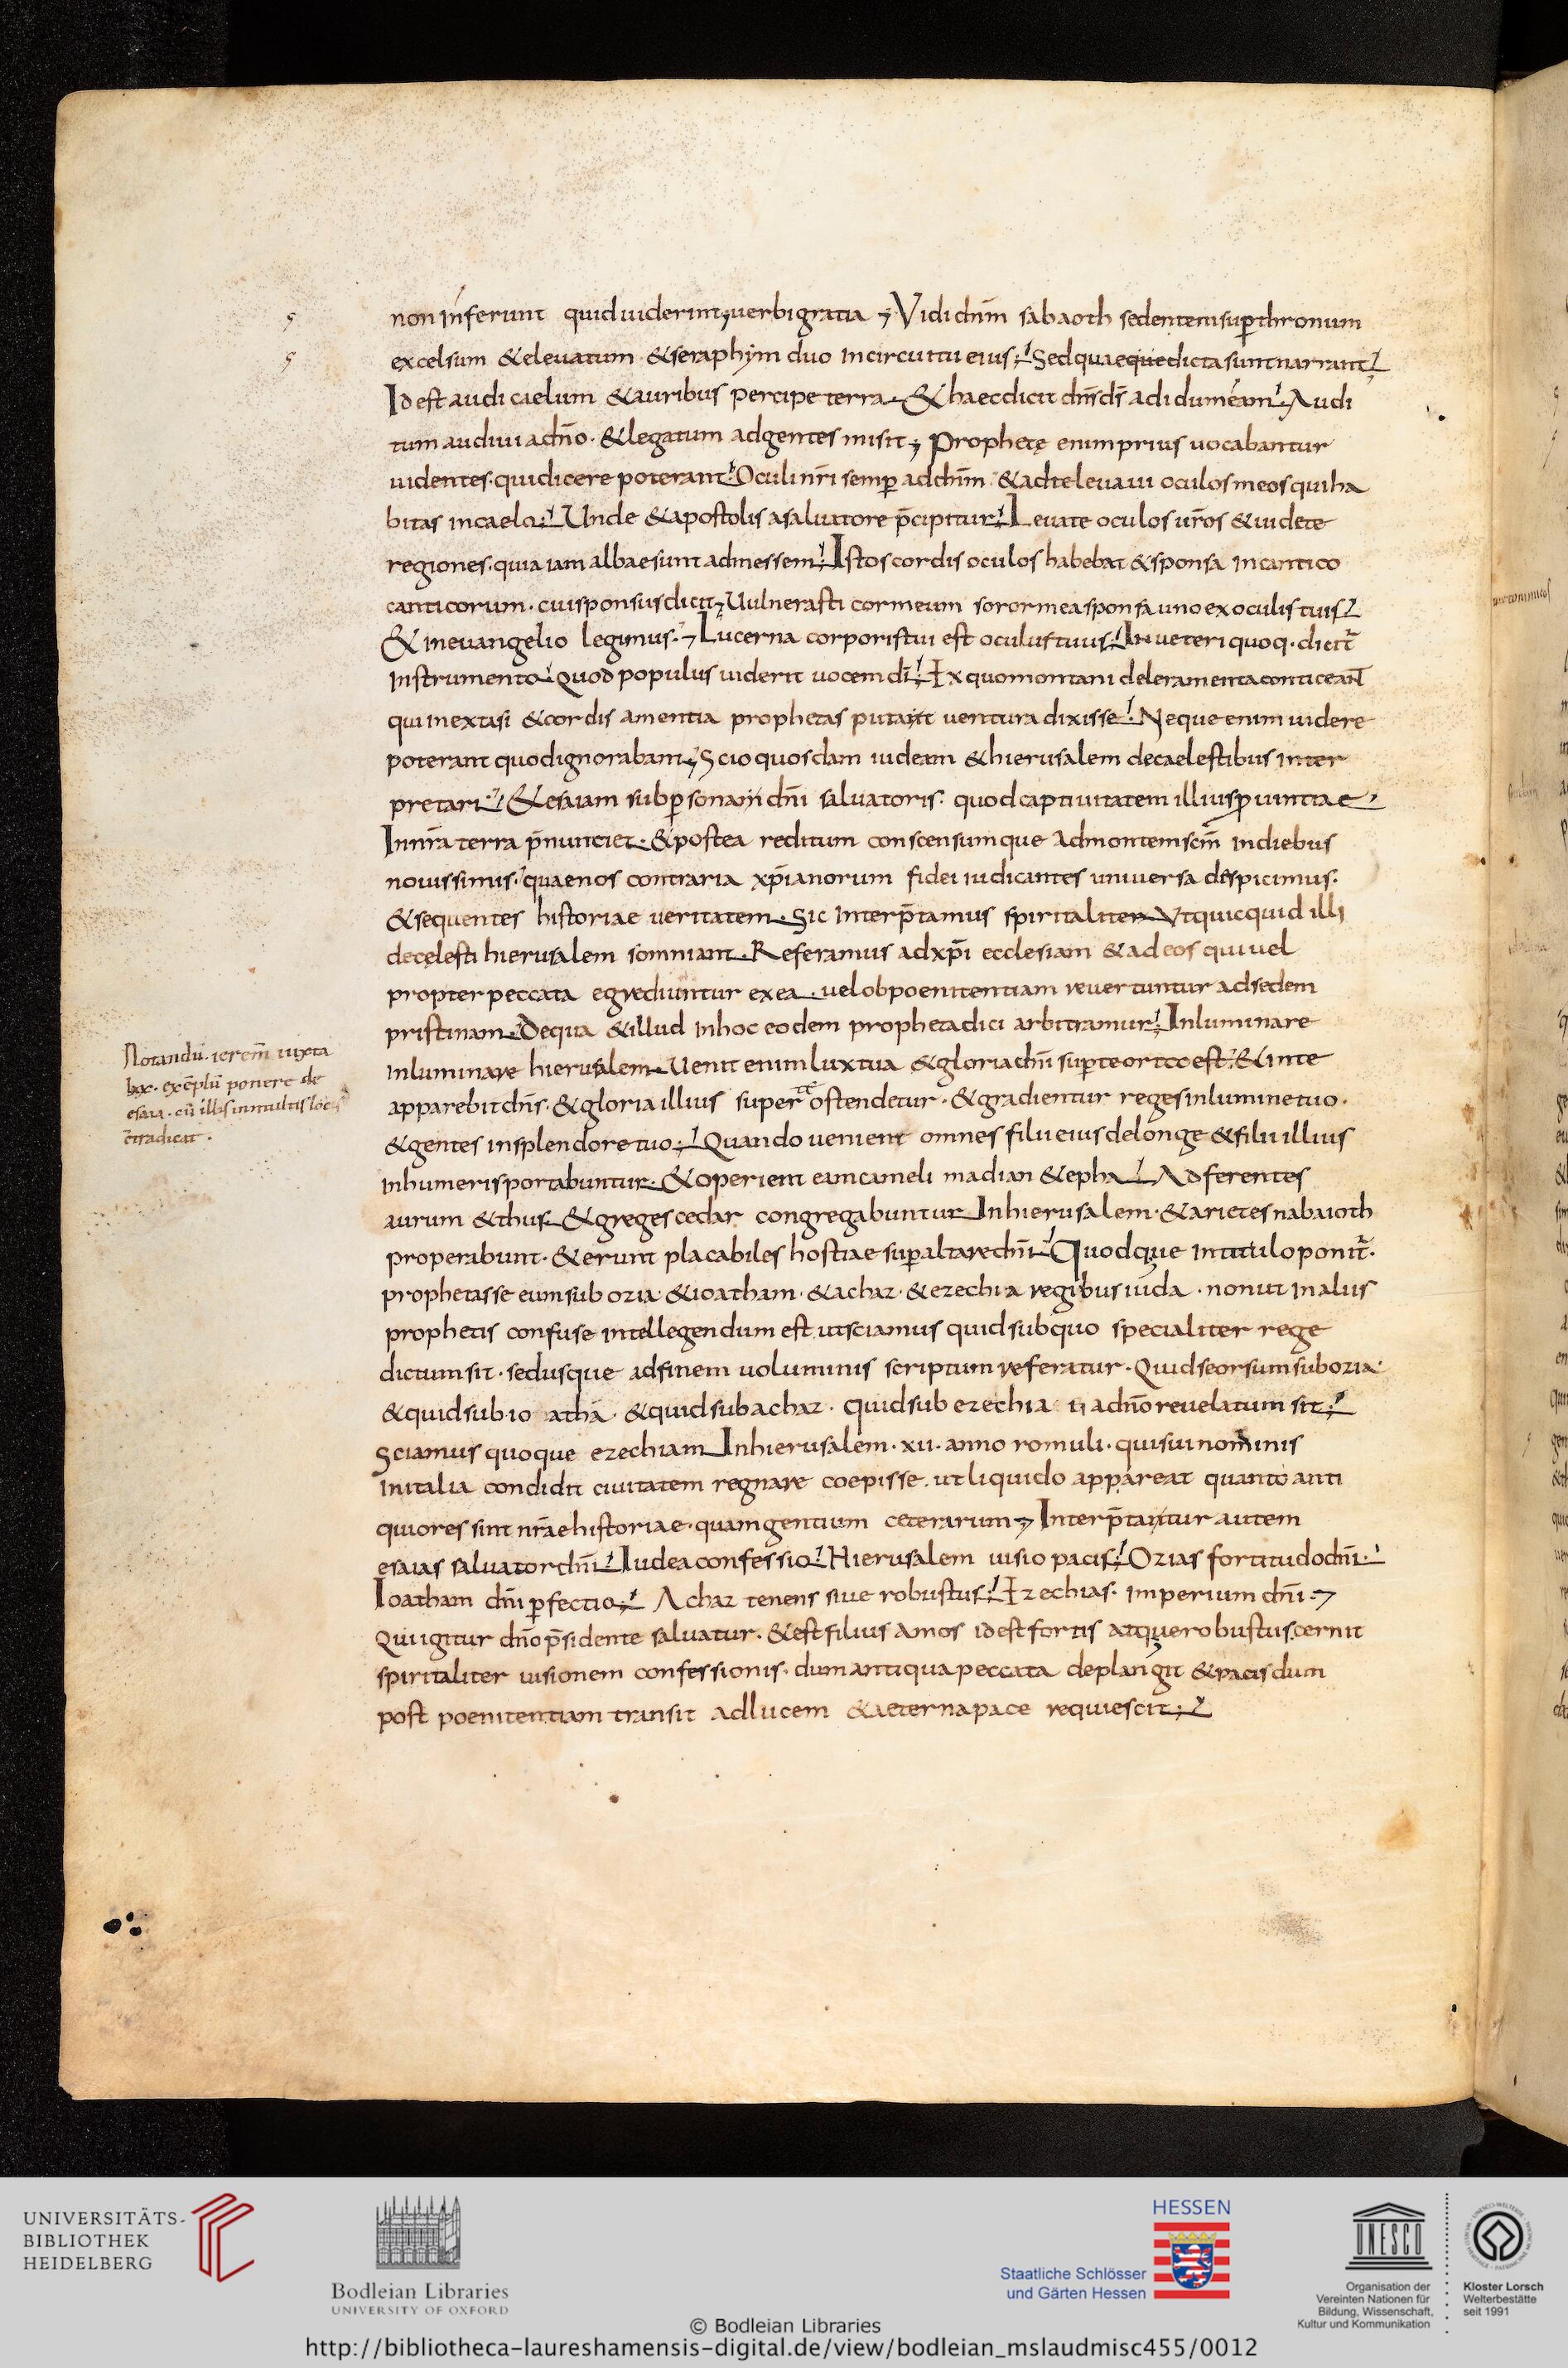 non inferunt quid uiderint; uerbi gratia ; Vidi dnm̄ sabaoth sedentem sup̄ thronum
excelsum &eleuatum &seraphym duo incircuitu eius; Sed quaequedicta sunt narrant;
Id est audi caelum &auribus percipe terra. & haec dicit dns̄ ds̄ ad idumeam; Audi
tum audiui adnō. &legatum adgentes misit; Prophetę enim prius uocabantur
uidentes. qui dicere poterant; Oculi nr̄i semp̄ addnm̄. &adte leuaui oculos meos qui ha
bitas in caelo; Unde &apostolis asaluatore p̄cipitur; Leuate oculos ur̄os &uidete
regiones. quia iam albae sunt admessem; Istos cordis oculos habebat &sponsa incantico
canticorum. cui sponsus dicit; Uulnerasti cor meum soror mea sponsa uno ex oculis tuis;
& in euangelio legimus; Lucerna corporis tui est oculus tuus; In ueteri quoq. dicit̄
Instrumento. Quod populus uiderit uocem dī; Ex quo montani deleramenta conticeant
qui inextasi &cordis amentia prophetas putant uentura dixisse; Neque enim uidere
poterant quod ignorabant; Scio quosdam iudeam &hierusalem decaelestibus inter
pretari; &esaiam sub p̄sonam dnī saluatoris. quod captiuitatem illius p̄uintiae
Innr̄a terra p̄nunciet. &postea reditum conscensumque admontem scm̄ indiebus
nouissimis. quae nos contraria xp̄ianorum fidei iudicantes uniuersa despicimus.
&sequentes historiae ueritatem. Sic interp̄tamus spiritaliter. Vt quicquid illi
decęlesti hierusalem somniant. Referamus ad xp̄i ecclesiam &ad eos qui uel
propter peccata egrediuntur ex ea. uel ob poenitentiam reuertuntur adsedem
pristinam. De qua &illud inhoc eodem propheta dici arbitramur; Inluminare
inluminare hierusalem. Uenit enim lux tua &gloria dnī sup̄ te orta est. &in te
apparebit dns̄. &gloria illius super te ostendetur. &gradientur reges inlumine tuo.
&gentes insplendore tuo; Quando uenient omnes filii eius delonge &filii illius
inhumeris portabuntur. &operient eam cameli madian &epha. Adferentes
aurum &thus. &greges cedar congregabuntur Inhierusalem. &arietes nabaioth
properabunt. &erunt placabiles hostiae sup̄ altare dnī; Quodque intitulo ponit̄.
prophetasse eum sub ozia &ioatham. &achaz. &ezechia regibus iuda. non ut inaliis
prophetis confuse intellegendum est ut sciamus quid sub quo specialiter rege
dictum sit. sed usque adfinem uoluminis scriptum referatur. Quid seorsum sub ozia
&quid sub ioathā. &quid sub achaz. quid sub ezechia adnō reuelatum sit;
Sciamus quoque ezechiam Inhierusalem. xii. anno romuli. qui sui nominis
initalia condidit ciuitatem regnare coepisse. ut liquido appareat quanto anti
quiores sint nr̄ae historiae. quam gentium ceterarum; Interp̄tantur autem
esaias saluator dnī; Iudea confessio; Hierusalem uisio pacis; Ozias fortitudo dnī.
Ioatham dnī p̄fectio; Achaz tenens siue robustus; Ezechias. imperium dnī;
Qui igitur dnō p̄sidente saluatur. &est filius amos id est fortis atque robustus. cernit
spiritaliter uisionem confessionis. dum antiqua peccata deplangit &pacis dum
post poenitentiam transit adlucem &aeterna pace requiescit;
Notandū. ierem̄ iuxta
hęc. exēplū ponere de
esaia. cū illis in multis locis
c̄tradicat.
UNIVERSITÄTS-
BIBLIOTHEK
HEIDELBERG
Bodleian Libraries
UNIVERSITY OF OXFORD
HESSEN
Staatliche Schlösser
und Gärten Hessen
UNESCO
Organisation der
Vereinten Nationen für
Bildung, Wissenschaft,
Kultur und Kommunikation
Kloster Lorsch
Welterbestätte
seit 1991
© Bodleian Libraries
http://bibliotheca-laureshamensis-digital.de/view/bodleian_mslaudmisc455/0012